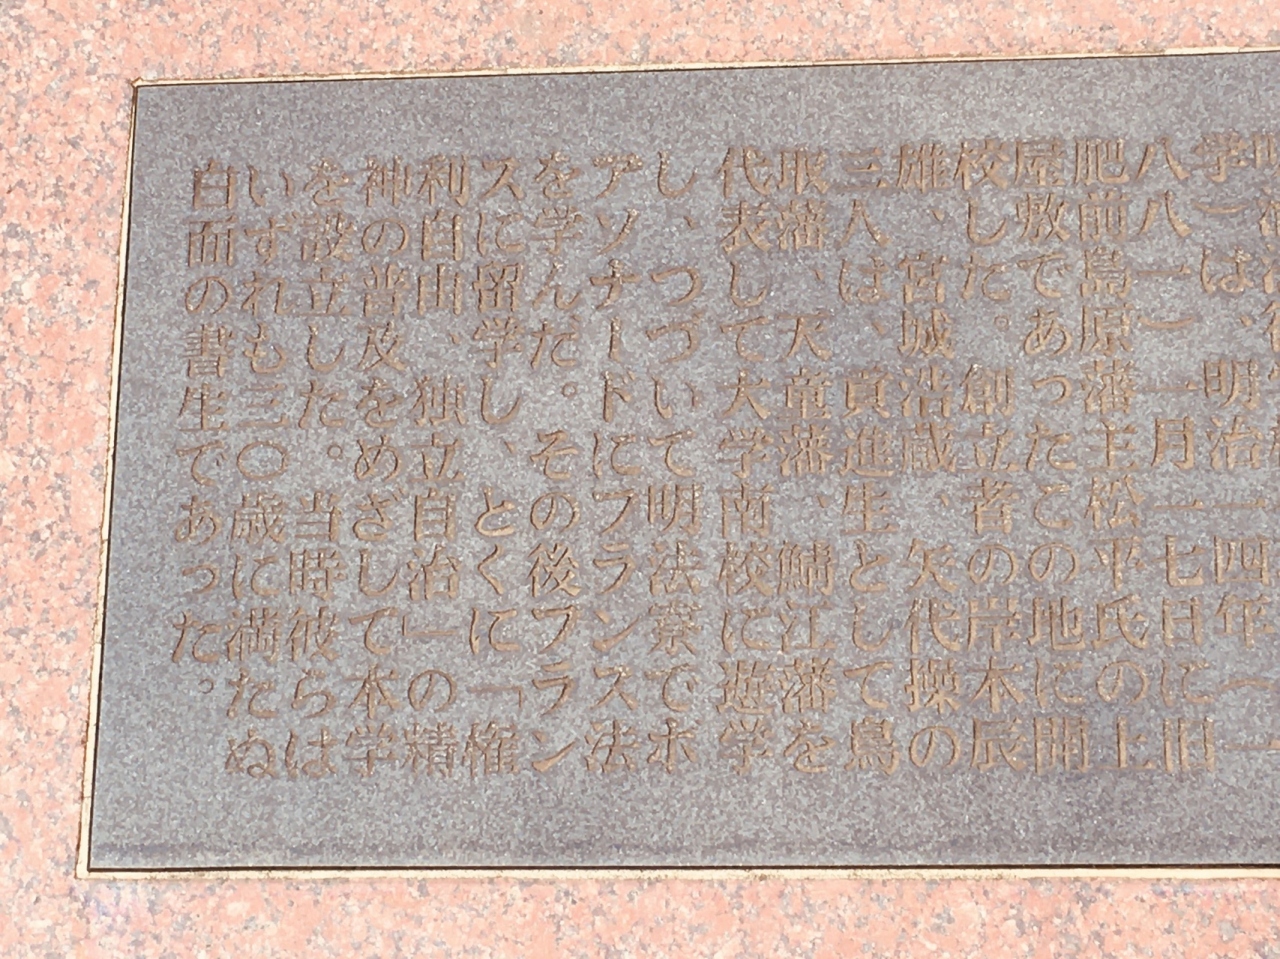 学)は、明治一四年(一
八八一)一月一七日に旧
肥前島原藩主松平氏の上
屋敷であったこの地に開
校した。創立者の岸本辰
雄、宮城浩蔵、矢代操の
三人は、貢進生として鳥
取藩、天童藩、鯖江藩を
代表して大学南校に遊学
し、つづいて明法寮でボ
アソナードにフランス法
を学んだ。その後フラン
スに留学し、とくに「権
利自由、独立自治」の精
神の普及をめざして本学
を設立した。当時彼らは
いずれも三〇歳に満たぬ
白面の書生であった。